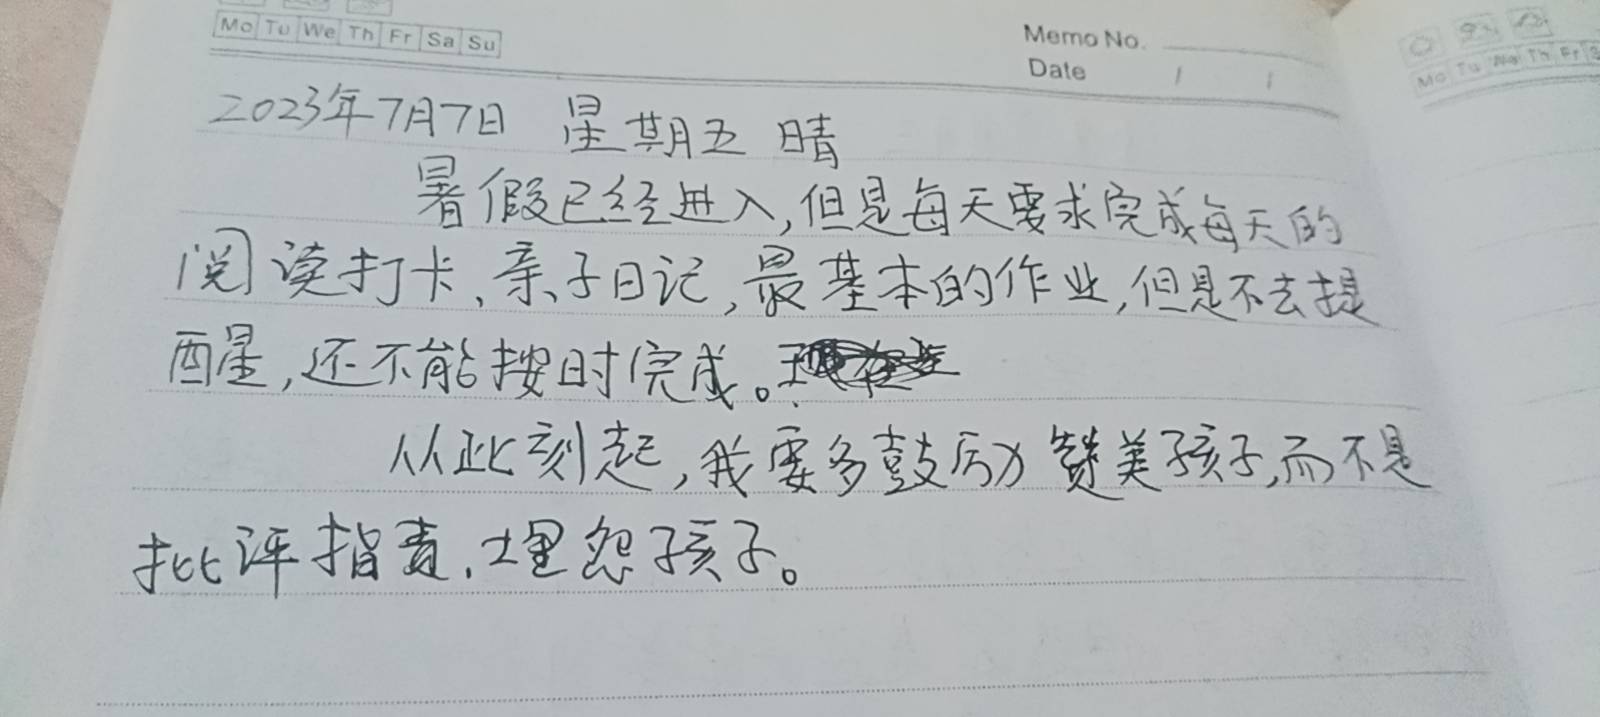 Mo Tu We Th Fr Sa Su
Memo No.
Date / /
Mo Tu We Th Fr
2023年7月7日 星期五 晴
暑假已经进入,但是每天要求完成每天的
阅读打卡、亲子日记,最基本的作业,但是不去提
醒,还不能按时完成。
从此刻起,我要多鼓励赞美孩子,而不是
批评指责、埋怨孩子。